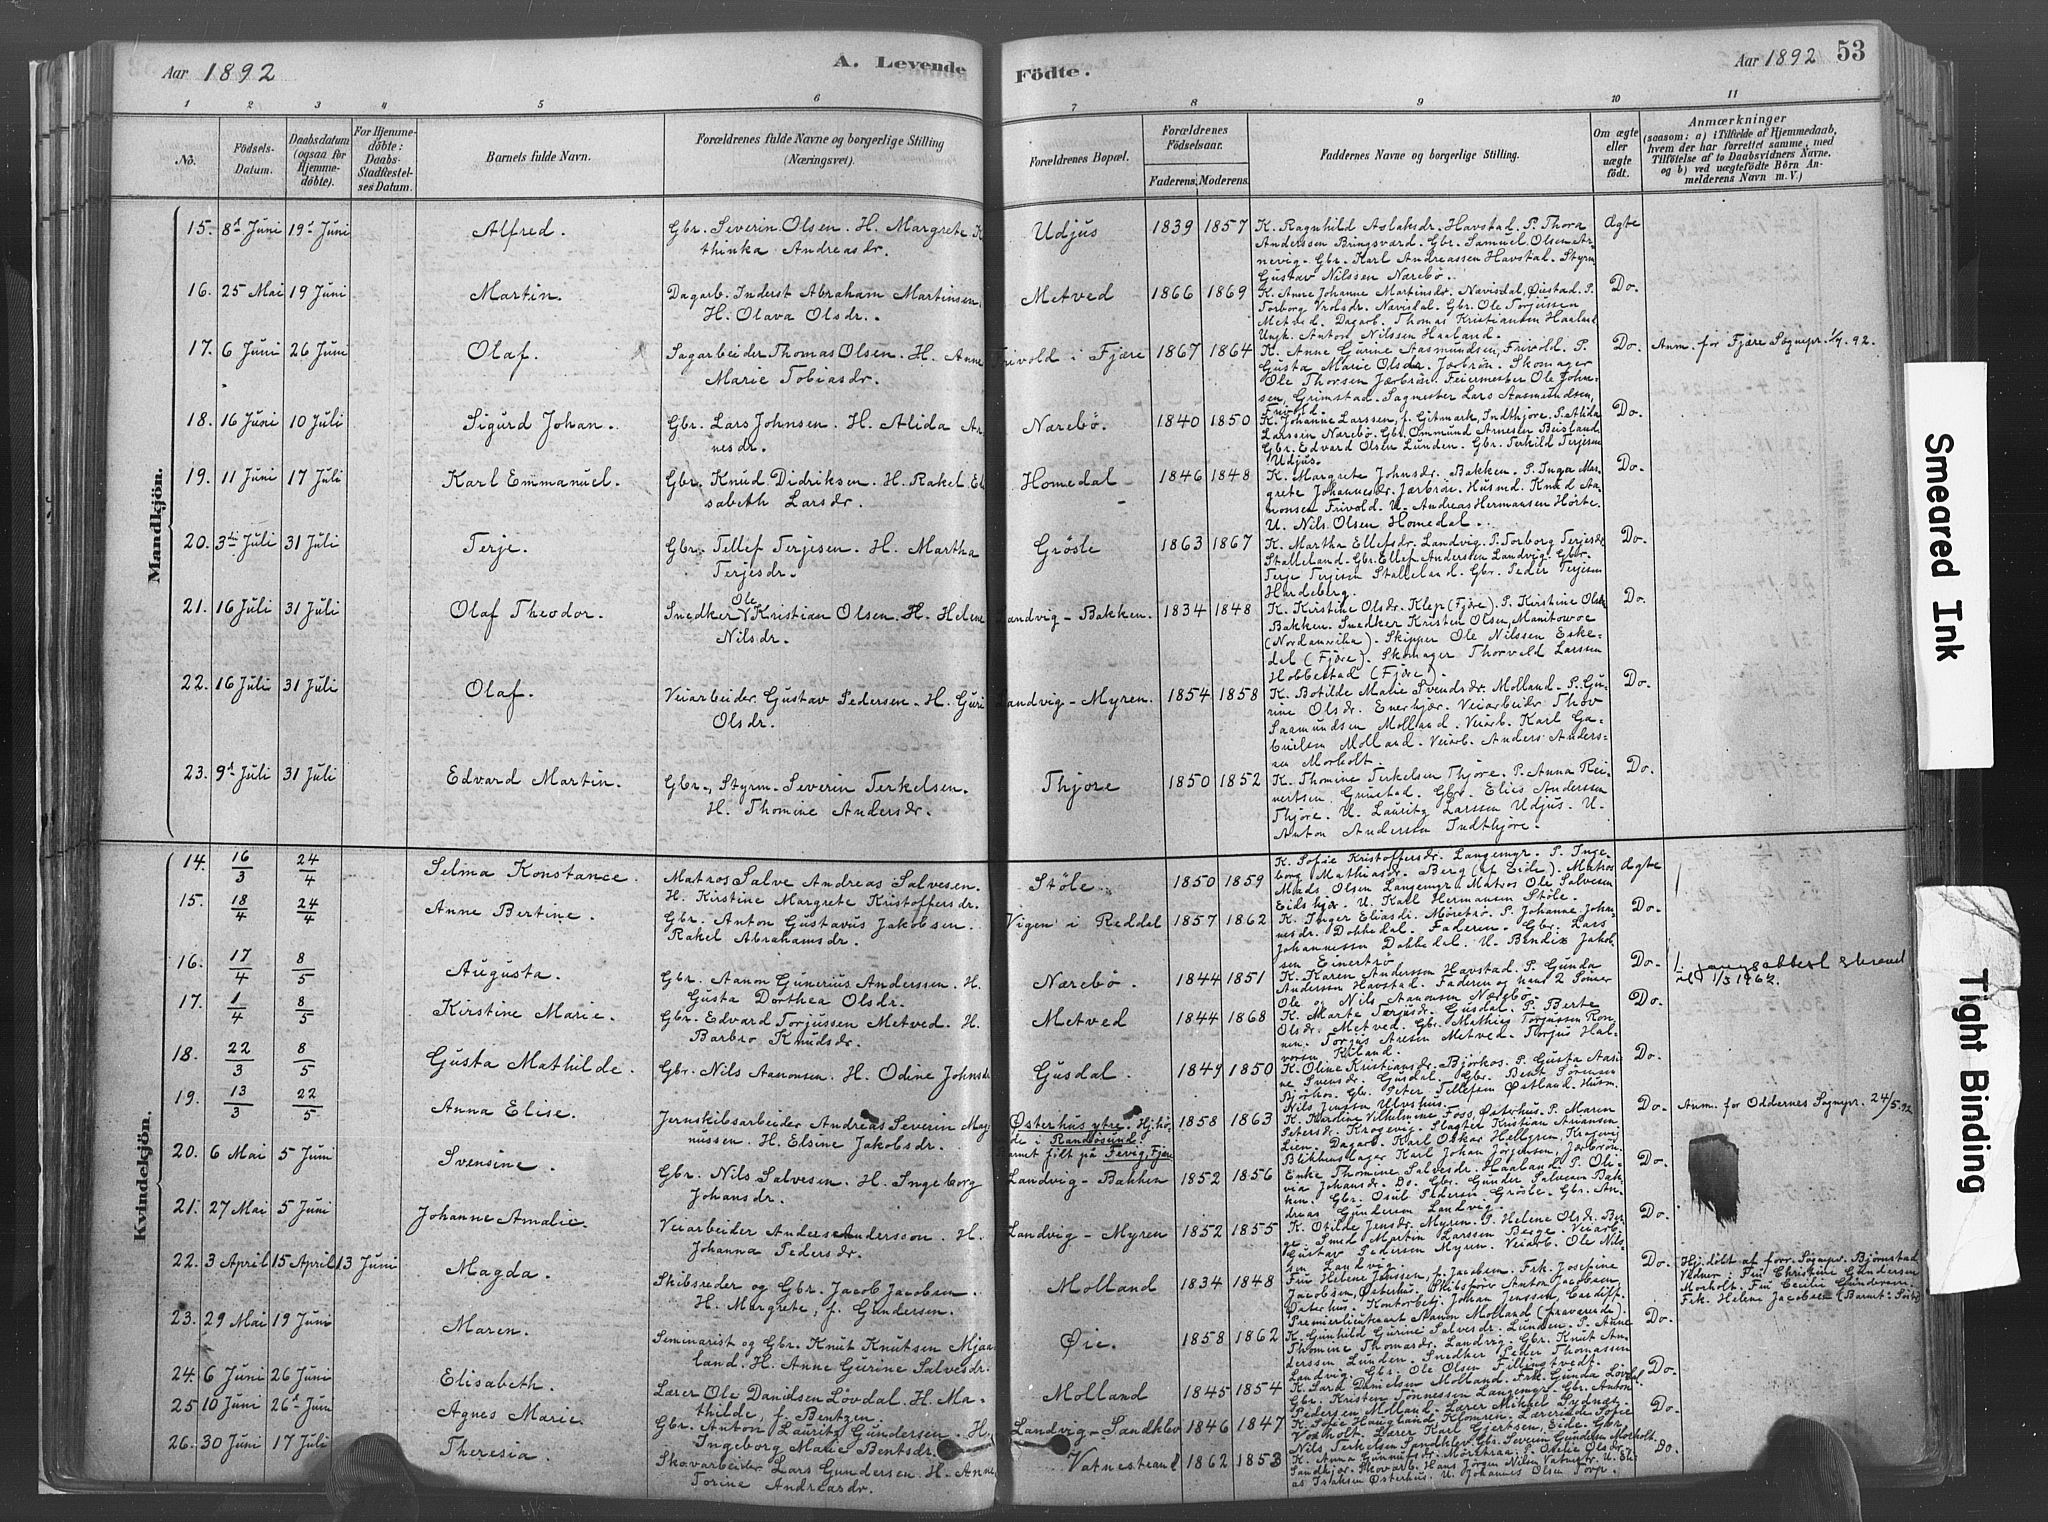 Aar 1892
A. Levende
Födte.
Aar 1892
53
1 2 3 4 5 6 7 8 9 10 11
No.
Födsels-
Datum.
Daabsdatum
(ogsaa for
Hjemme-
döbte).
For Hjemme-
döbte:
Daabs-
Stadfæstel-
ses Datum.
Barnets fulde Navn.
Forældrenes fulde Navne og borgerlige Stilling
(Næringsvei).
Forældrenes Bopæl.
Forældrenes
Födselsaar.
Faderens. Moderens.
Faddernes Navne og borgerlige Stilling.
Om ægte
eller
uægte
födt.
Anmærkninger
(saasom: a) i Tilfælde af Hjemmedaab,
hvem der har forrettet samme, med
Tilföielse af to Daabsvidners Navne,
og b) ved uægtefödte Börn An-
melderens Navn m. V.)
Mandkjön.
15. 8d Juni 19d Juni Alfred. Gbr. Severin Olsen. H. Margrete K
thinka Andreasdr.
Udjus 1839 1857 K. Ragnhild Aslaksdr. Havstad. P. Thora
Anderssen Bringsværd. Gbr. Samuel Olsen Ar-
nevig. Gbr. Karl Andreassen Havstad. Styrm.
Gustav Nilssen Nærebö.
Ægte
16. 25 Mai 19 Juni Martin. Dagarb. Inderst Abraham Martinsen
H. Olava Olsdr.
Metved 1866 1869 K. Anne Johanne Martinsdr. Navisdal, Øiestad. P.
Torborg Vrolsdr. Navisdal. Gbr. Ole Torjussen
Metved. Dagarb. Thomas Kristiansen Haaland
Ungk. Anton Nilssen Haaland.
Do.
17. 6 Juni 26 Juni Olaf. Sagarbeider Thomas Olsen. H. Anne
Marie Tobiasdr.
Frivold i Fjære 1867 1864 K. Anne Gurine Aasmundsen, Frivold. P.
Gusta Marie Olsdr. Jærbrön. Skomager
Ole Thorsen Jærbrön. Feiermester Ole John-
sen, Grimstad. Sagmester Lars Aasmundsen,
Frivold.
Do. Anm. for Fjære Sognepr. 1/7. 92.
18. 16 Juni 10 Juli Sigurd Johan. Gbr. Lars Johnsen. H. Alida Ar
nesdr.
Nærebö. 1840 1850 K. Johanne Larssen, f. Gitmark, Indthjore. P. Alida
Larssen Nærebö. Gbr. Ommund Arnesen Beisland.
Gbr. Edvard Olsen Lunden. Gbr. Terkild Terjesen
Udjus.
Do.
19. 11 Juni 17 Juli Karl Emmanuel. Gbr. Knud Didriksen. H. Rakel El
sabeth Larsdr.
Homedal 1846 1848 K. Margrete Johnsdr. Bakken. P. Inger Mar-
grete Johannesdr. Jærbrön. Husmd. Knud Aa-
monsen Frivold. U. Andreas Hermansen Hörte.
U. Nils Olsen Homedal.
Do.
20. 3die Juli 31 Juli Terje. Gbr. Tellef Terjesen. H. Martha
Terjesdr.
Gröslе 1863 1867 K. Martha Ellefsdr. Landvig. P. Torborg Terjesdr
Stalleland. Gbr. Ellef Andersen Landvig. Gbr.
Terje Terjesen Stalleland. Gbr. Peder Terjesen
Hardeberg.
Do.
21. 16 Juli 31 Juli Olaf Theodor. Snedker Ole Kristian Olsen. H. Helene
Nilsdr.
Landvig-Bakken. 1834 1848 K. Kristine Olsdr. Klep (Fjöre). P. Kirstine Olsdr
Bakken. Snedker Kristen Olsen, Manitowoc
(Nordamerika). Skipper Ole Nilssen Eske-
dal (Fjöre). Skomager Thorvald Larssen
Hobbestad (Fjöre).
Do.
22. 16 Juli 31 Juli Olaf. Veiarbeider Gustav Pedersen. H. Guri
Olsdr.
Landvig-Myren. 1854 1858 K. Botilde Marie Svendsdr. Molland. P. Gu-
rine Olsdr. Enerhjær. Veiarbeider Thov
Saamundsen Molland. Veiarb. Karl Ga-
brielsen Molland. Veiarb. Anders Anders-
sen Morholt.
Do.
23. 9d Juli 31 Juli Edvard Martin. Gbr., Styrm. Severin Terkelsen.
H. Thomine Andersdr.
Thjore 1850 1852 K. Thomine Terkelsen Thjore. P. Anna Rei-
nertsen. Grimstad. Gbr. Elies Anderssen
Thjore. U. Lauritz Larssen Udjus. U.
Anton Anderssen Indthjore.
Do.
Kvindekjön.
14. 16/3 24/4 Selma Konstance. Matros Salve Andreas Salvesen.
H. Kirstine Margrete Kristoffersdr.
Støle 1850 1859 K. Sofie Kristoffersdr. Langemyr. P. Inge-
borg Mathiasdr. Berg (at Eide). Matros
Mads Olsen Langemyr Matros Ole Salvesen
Eidshjær. U. Karl Hermansen Støle.
Ægte
15. 18/4 24/4 Anne Bertine. Gbr. Anton Gustavus Jakobsen.
Rakel Abrahamsdr.
Vigen i Reddal 1857 1862 K. Inger Eliasdr. Möretrö. P. Johanne Johan-
nesdr. Dobbedal. Faderen. Gbr. Lars
Johannessen Dobbedal. U. Bendix Jakob-
sen Einertrö
Do.
16. 17/4 8/5 Augusta. Gbr. Aanon Gunerius Anderssen. H.
Gusta Dorthea Olsdr.
Nærebö. 1844 1851 K. Karen Anderssen Havstad. P. Gunda
Anderssen Havstad. Faderen og hans 2 Sönner
Ole og Nils Aanonsen Nærebö.
Do. 1/3 1962.
17. 1/4 8/5 Kirstine Marie. Gbr. Edvard Torjussen Metved. H.
Barbro Knudsdr.
Metved 1844 1868 K. Marte Terjesdr. Gusdal. P. Berte
Olsdr. Metved. Gbr. Mathias Torjussen Ron-
nen. Torjus Aresen Metved. Torjus Hal-
vorsen Kiland.
Do.
18. 22/3 8/5 Gusta Mathilde. Gbr. Nils Aanonsen. H. Odine Johnsdr
Gusdal. 1849 1850 K. Oline Kristiansdr. Björkos. P. Gusta Aasi-
ne Svensdr. Gusdal. Gbr. Bent Sörensen
Björkos. Gbr. Peter Tellefsen Østland. Husm.
Nils Jenssen Ulvshus.
Do.
19. 13/3 22/5 Anna Elise. Jernskibsarbeider Andreas Severin Mag
nussen. H. Elsine Jakobsdr.
Østerhus ytre. Hjhö
de i Randösund
Barnet födt på Fevig, Fjære
1858 1863 K. Karoline Vilhelmine Foss, Østerhus. P. Maren
Petersdr. Krogevig. Slagter Kristian Arianssen
Lien. Dagarb. Karl Oskar Hellgren, Krogevig.
Blikkenslager Karl Johan Jörgensen, Jærbrön.
Do. Anm. for Oddernes Sognepr. 24/5. 92
20. 6 Mai 5 Juni Svensine. Gbr. Nils Salvesen. H. Ingeborg
Johansdr.
Landvig-Bakken 1852 1856 Enke Thomine Salvesdr. Haaland. P. Oli-
via Johansdr. Do. Gbr. Gunder Salvesen Bak-
ken. Gbr. Osul Pedersen Grösle. Gbr. An-
dreas Gundersen Landvig.
Do.
21. 27 Mai 5 Juni Johanne Amalie. Veiarbeider Anders Anderssøn. H.
Johanna Pedersdr.
Landvig-Myren 1852 1855 K. Otilde Jensdr. Myren. P. Helene Olsdr. Bei-
ge. Smed Martin Larssen Beige. Veiarb.
Gustav Pedersen Myren. Veiarb. Ole Nils-
sen Landvig.
Do.
22. 3 April 15 April 13 Juni Magda. Skibsreder og Gbr. Jacob Jacobsen.
H. Margrete, f. Gundersen.
Molland 1834 1848 Fru Helene Jenssen, f. Jacobsen. Frk. Josefine
Jacobsen, Østerhus. Skibsförer Anton Jacobsen
Østerhus. Kontorbetj. Johan Jenssen, Cardiff.
Premierlieutenant Aanon Molland (fraværende).
Do. Hj.döbt af forr. Sognepr. Björnstad
Vidner: Fru Christine Gundersen
Morholt. Fru Cecilie Gundersen.
Frk. Helene Jacobsen
23. 29 Mai 19 Juni Maren. Seminarist og Gbr. Knut Knutsen Mjaa
land. H. Anne Gurine Salvesdr.
Øie. 1858 1862 K. Gunhild Gurine Salvesdr. Lunden. P. Anne
Thomine Thomasdr. Landvig. Gbr. Knut An-
derssen Lunden. Snedker Peder Thomassen
Landvig. Gbr. Ole Olsen Fillingstvedt.
Do.
24. 6 Juni 26 Juni Elisabeth. Lærer Ole Danielsen Lövdal. H. Ma-
thilde, f. Bentzen.
Molland 1845 1854 K. Sara Danielsen Molland. Frk. Gunda Lövdal.
Gbr. Kristen Tönnessen Langemyr. Gbr. Anton
Pedersen Molland. Lærer Mikkel Sydnæs
Do.
25 10 Juni 26d Juni Agnes Marie. Gbr. Anton Lauritz Gundersen. H.
Ingeborg Marie Bentsdr.
Landvig-Sandklev 1846 1847 K. Sofie Haugland, Klomren. Lærerinde Sofie
Voxholt. Lærer Karl Gjertsen, Eide. Gbr.
Nils Terkelsen Sandklev. Gbr. Severin Gundersen Morholt.
Do.
26. 30 Juni 17 Juli Theresia. Skovarbeider Lars Gundersen. H. Anne
Torine Andreasdr.
Vatnestrand 1862 1853 K. Anna Gunnufsdr. Möretraa. P. Osefie Olsdr.
Sandkjær. Skovarb. Hans Jörgen Nilsen Vatnestr. U. Eli-
as Isaksen Østerhus. U. Johannes Olsen Torp.
Do.
Smeared Ink
Tight Binding